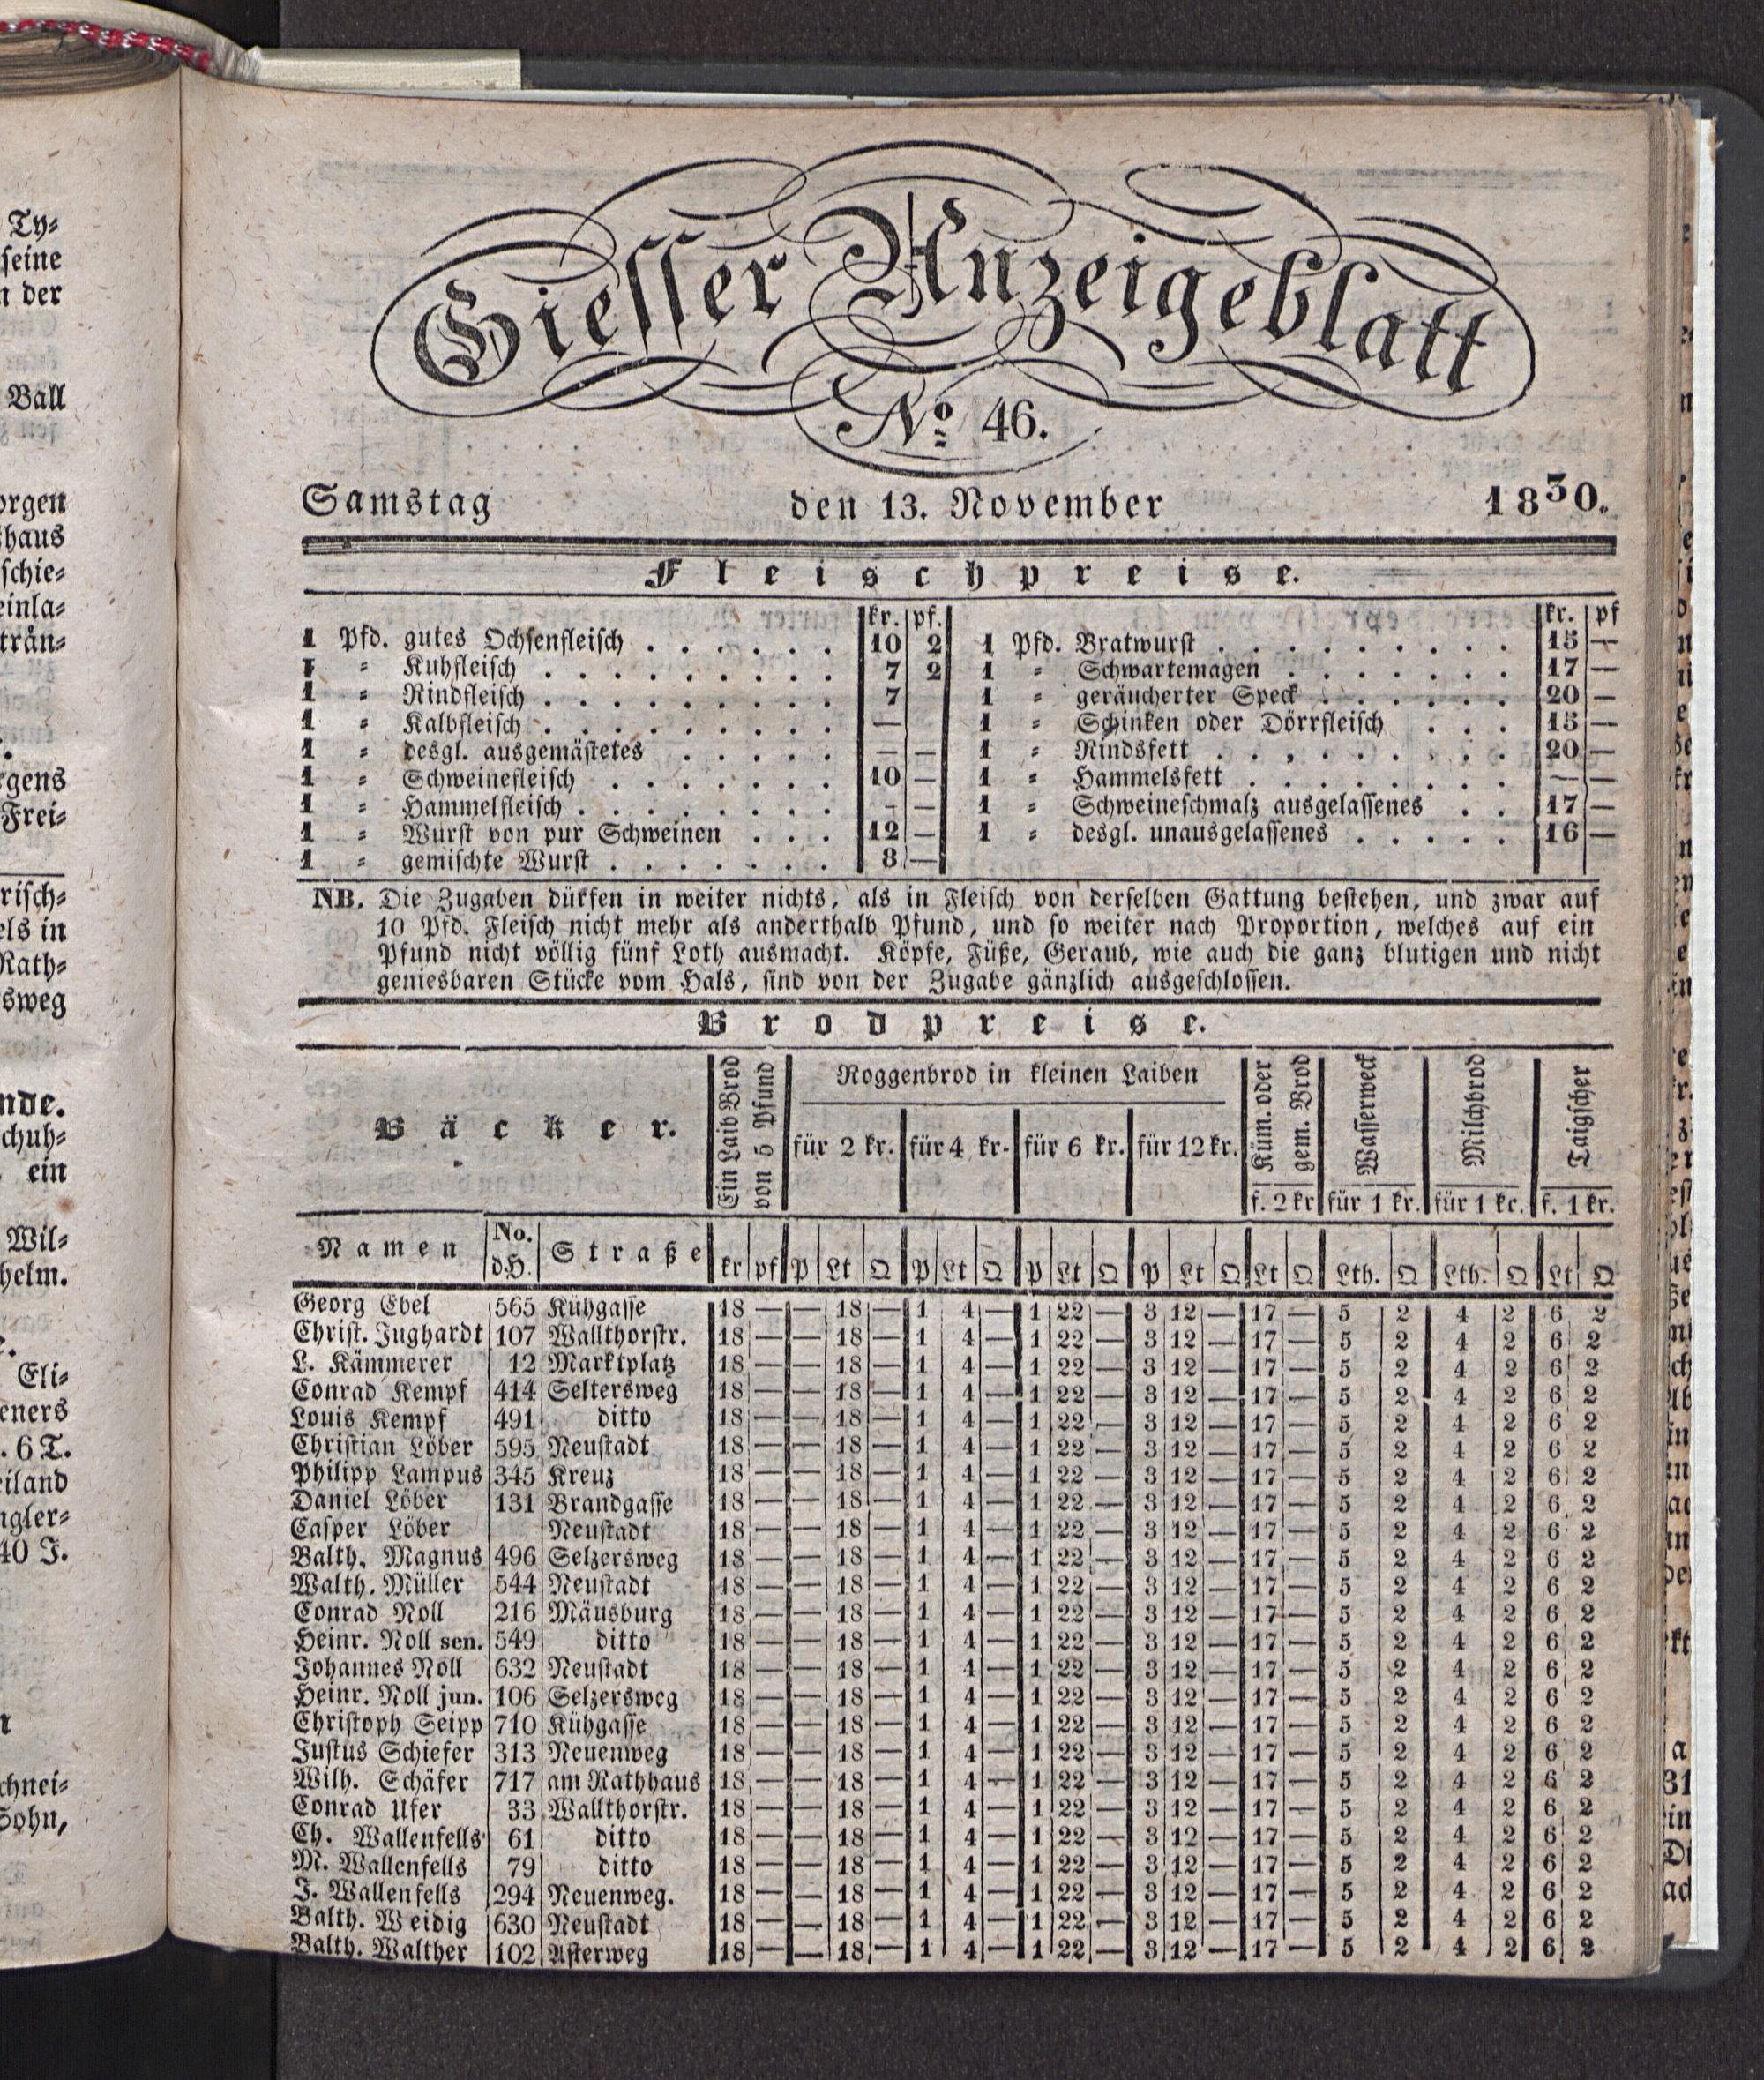 Ty⸗
seine
n der
Ball
orgen
haus
schie⸗
einla⸗
trän⸗
rgens
Frei⸗
risch⸗
els in
Rath⸗
sweg
nde.
chuh⸗
ein
Wil⸗
helm.
Eli⸗
eners
. 6 T.
eiland
ngler⸗
40 J.
chnei⸗
Sohn,
Giesser Anzeigeblatt
No 46.
Samstag den 13. November 1830.
Fleischpreise.
kr. pf. kr. pf
1 Pfd. gutes Ochsenfleisch . . . . . . 10 2 1 Pfd. Bratwurst . . . . . . . . . 15 —
1 ⸗ Kuhfleisch . . . . . . . . . 7 2 1 ⸗ Schwartemagen . . . . . . . 17 —
1 ⸗ Rindfleisch . . . . . . . . . 7 1 ⸗ geräucherter Speck . . . . . . 20 —
1 ⸗ Kalbfleisch . . . . . . . . . — 1 ⸗ Schinken oder Dörrfleisch . . . 15 —
1 ⸗ desgl. ausgemästetes . . . . . — — 1 ⸗ Rindsfett . . . . . . . . . 20 —
1 ⸗ Schweinefleisch . . . . . . . 10 — 1 ⸗ Hammelsfett . . . . . . . . — —
1 ⸗ Hammelfleisch . . . . . . . . — — 1 ⸗ Schweineschmalz ausgelassenes . . 17 —
1 ⸗ Wurst von pur Schweinen . . . 12 — 1 ⸗ desgl. unausgelassenes . . . . . 16 —
1 ⸗ gemischte Wurst . . . . . . . 8 —
NB. Die Zugaben dürfen in weiter nichts, als in Fleisch von derselben Gattung bestehen, und zwar auf
10 Pfd. Fleisch nicht mehr als anderthalb Pfund, und so weiter nach Proportion, welches auf ein
Pfund nicht völlig fünf Loth ausmacht. Köpfe, Füße, Geraub, wie auch die ganz blutigen und nicht
geniesbaren Stücke vom Hals, sind von der Zugabe gänzlich ausgeschlossen.
Brodpreise.
Bäcker.
Ein Laib Brod
von 5 Pfund
Roggenbrod in kleinen Laiben
für 2 kr. für 4 kr. für 6 kr. für 12 kr.
Küm. oder
gem. Brod
f. 2 kr
Wasserweck
für 1 kr.
Milchbrod
für 1 kr.
Taigscher
f. 1 kr.
Namen No. d.H. Straße kr pf P Lt Q P Lt Q P Lt Q P Lt Q Lt Q Lth. Q Lth. Q Lt Q
Georg Ebel 565 Kühgasse 18 — — 18 — 1 4 — 1 22 — 3 12 — 17 — 5 2 4 2 6 2
Christ. Jughardt 107 Wallthorstr. 18 — — 18 — 1 4 — 1 22 — 3 12 — 17 — 5 2 4 2 6 2
L. Kämmerer 12 Marktplatz 18 — — 18 — 1 4 — 1 22 — 3 12 — 17 — 5 2 4 2 6 2
Conrad Kempf 414 Seltersweg 18 — — 18 — 1 4 — 1 22 — 3 12 — 17 — 5 2 4 2 6 2
Louis Kempf 491 ditto 18 — — 18 — 1 4 — 1 22 — 3 12 — 17 — 5 2 4 2 6 2
Christian Löber 595 Neustadt 18 — — 18 — 1 4 — 1 22 — 3 12 — 17 — 5 2 4 2 6 2
Philipp Lampus 345 Kreuz 18 — — 18 — 1 4 — 1 22 — 3 12 — 17 — 5 2 4 2 6 2
Daniel Löber 131 Brandgasse 18 — — 18 — 1 4 — 1 22 — 3 12 — 17 — 5 2 4 2 6 2
Casper Löber Neustadt 18 — — 18 — 1 4 — 1 22 — 3 12 — 17 — 5 2 4 2 6 2
Balth. Magnus 496 Selzersweg 18 — — 18 — 1 4 — 1 22 — 3 12 — 17 — 5 2 4 2 6 2
Walth. Müller 544 Neustadt 18 — — 18 — 1 4 — 1 22 — 3 12 — 17 — 5 2 4 2 6 2
Conrad Noll 216 Mäusburg 18 — — 18 — 1 4 — 1 22 — 3 12 — 17 — 5 2 4 2 6 2
Heinr. Noll sen. 549 ditto 18 — — 18 — 1 4 — 1 22 — 3 12 — 17 — 5 2 4 2 6 2
Johannes Noll 632 Neustadt 18 — — 18 — 1 4 — 1 22 — 3 12 — 17 — 5 2 4 2 6 2
Heinr. Noll jun. 106 Selzersweg 18 — — 18 — 1 4 — 1 22 — 3 12 — 17 — 5 2 4 2 6 2
Christoph Seipp 710 Kühgasse 18 — — 18 — 1 4 — 1 22 — 3 12 — 17 — 5 2 4 2 6 2
Justus Schiefer 313 Neuenweg 18 — — 18 — 1 4 — 1 22 — 3 12 — 17 — 5 2 4 2 6 2
Wilh. Schäfer 717 am Rathhaus 18 — — 18 — 1 4 — 1 22 — 3 12 — 17 — 5 2 4 2 6 2
Conrad Ufer 33 Wallthorstr. 18 — — 18 — 1 4 — 1 22 — 3 12 — 17 — 5 2 4 2 6 2
Ch. Wallenfells 61 ditto 18 — — 18 — 1 4 — 1 22 — 3 12 — 17 — 5 2 4 2 6 2
M. Wallenfells 79 ditto 18 — — 18 — 1 4 — 1 22 — 3 12 — 17 — 5 2 4 2 6 2
J. Wallenfells 294 Neuenweg. 18 — — 18 — 1 4 — 1 22 — 3 12 — 17 — 5 2 4 2 6 2
Balth. Weidig 630 Neustadt 18 — — 18 — 1 4 — 1 22 — 3 12 — 17 — 5 2 4 2 6 2
Balth. Walther 102 Asterweg 18 — — 18 — 1 4 — 1 22 — 3 12 — 17 — 5 2 4 2 6 2